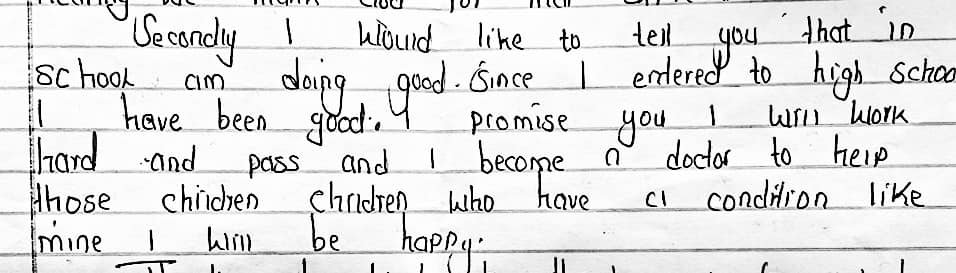 Secondly I would like to tell you that in
school am doing good. Since I entered to high schoo
I have been good. I promise you I will work
hard and pass and I become a doctor to help
those children children who have a condition like
mine I will be happy.